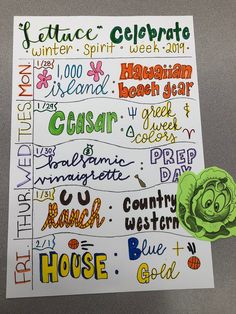 "Lettuce" Celebrate
winter • Spirit • week • 2019
MON 1/28 1,000 island : Hawaiian beach gear
TUES 1/29 Ceasar : greek week colors
WED 1/30 balsamic vinaigrette : PREP DAY
THUR 1/31 Ranch : Country western
FRI. 2/1 HOUSE : Blue + Gold